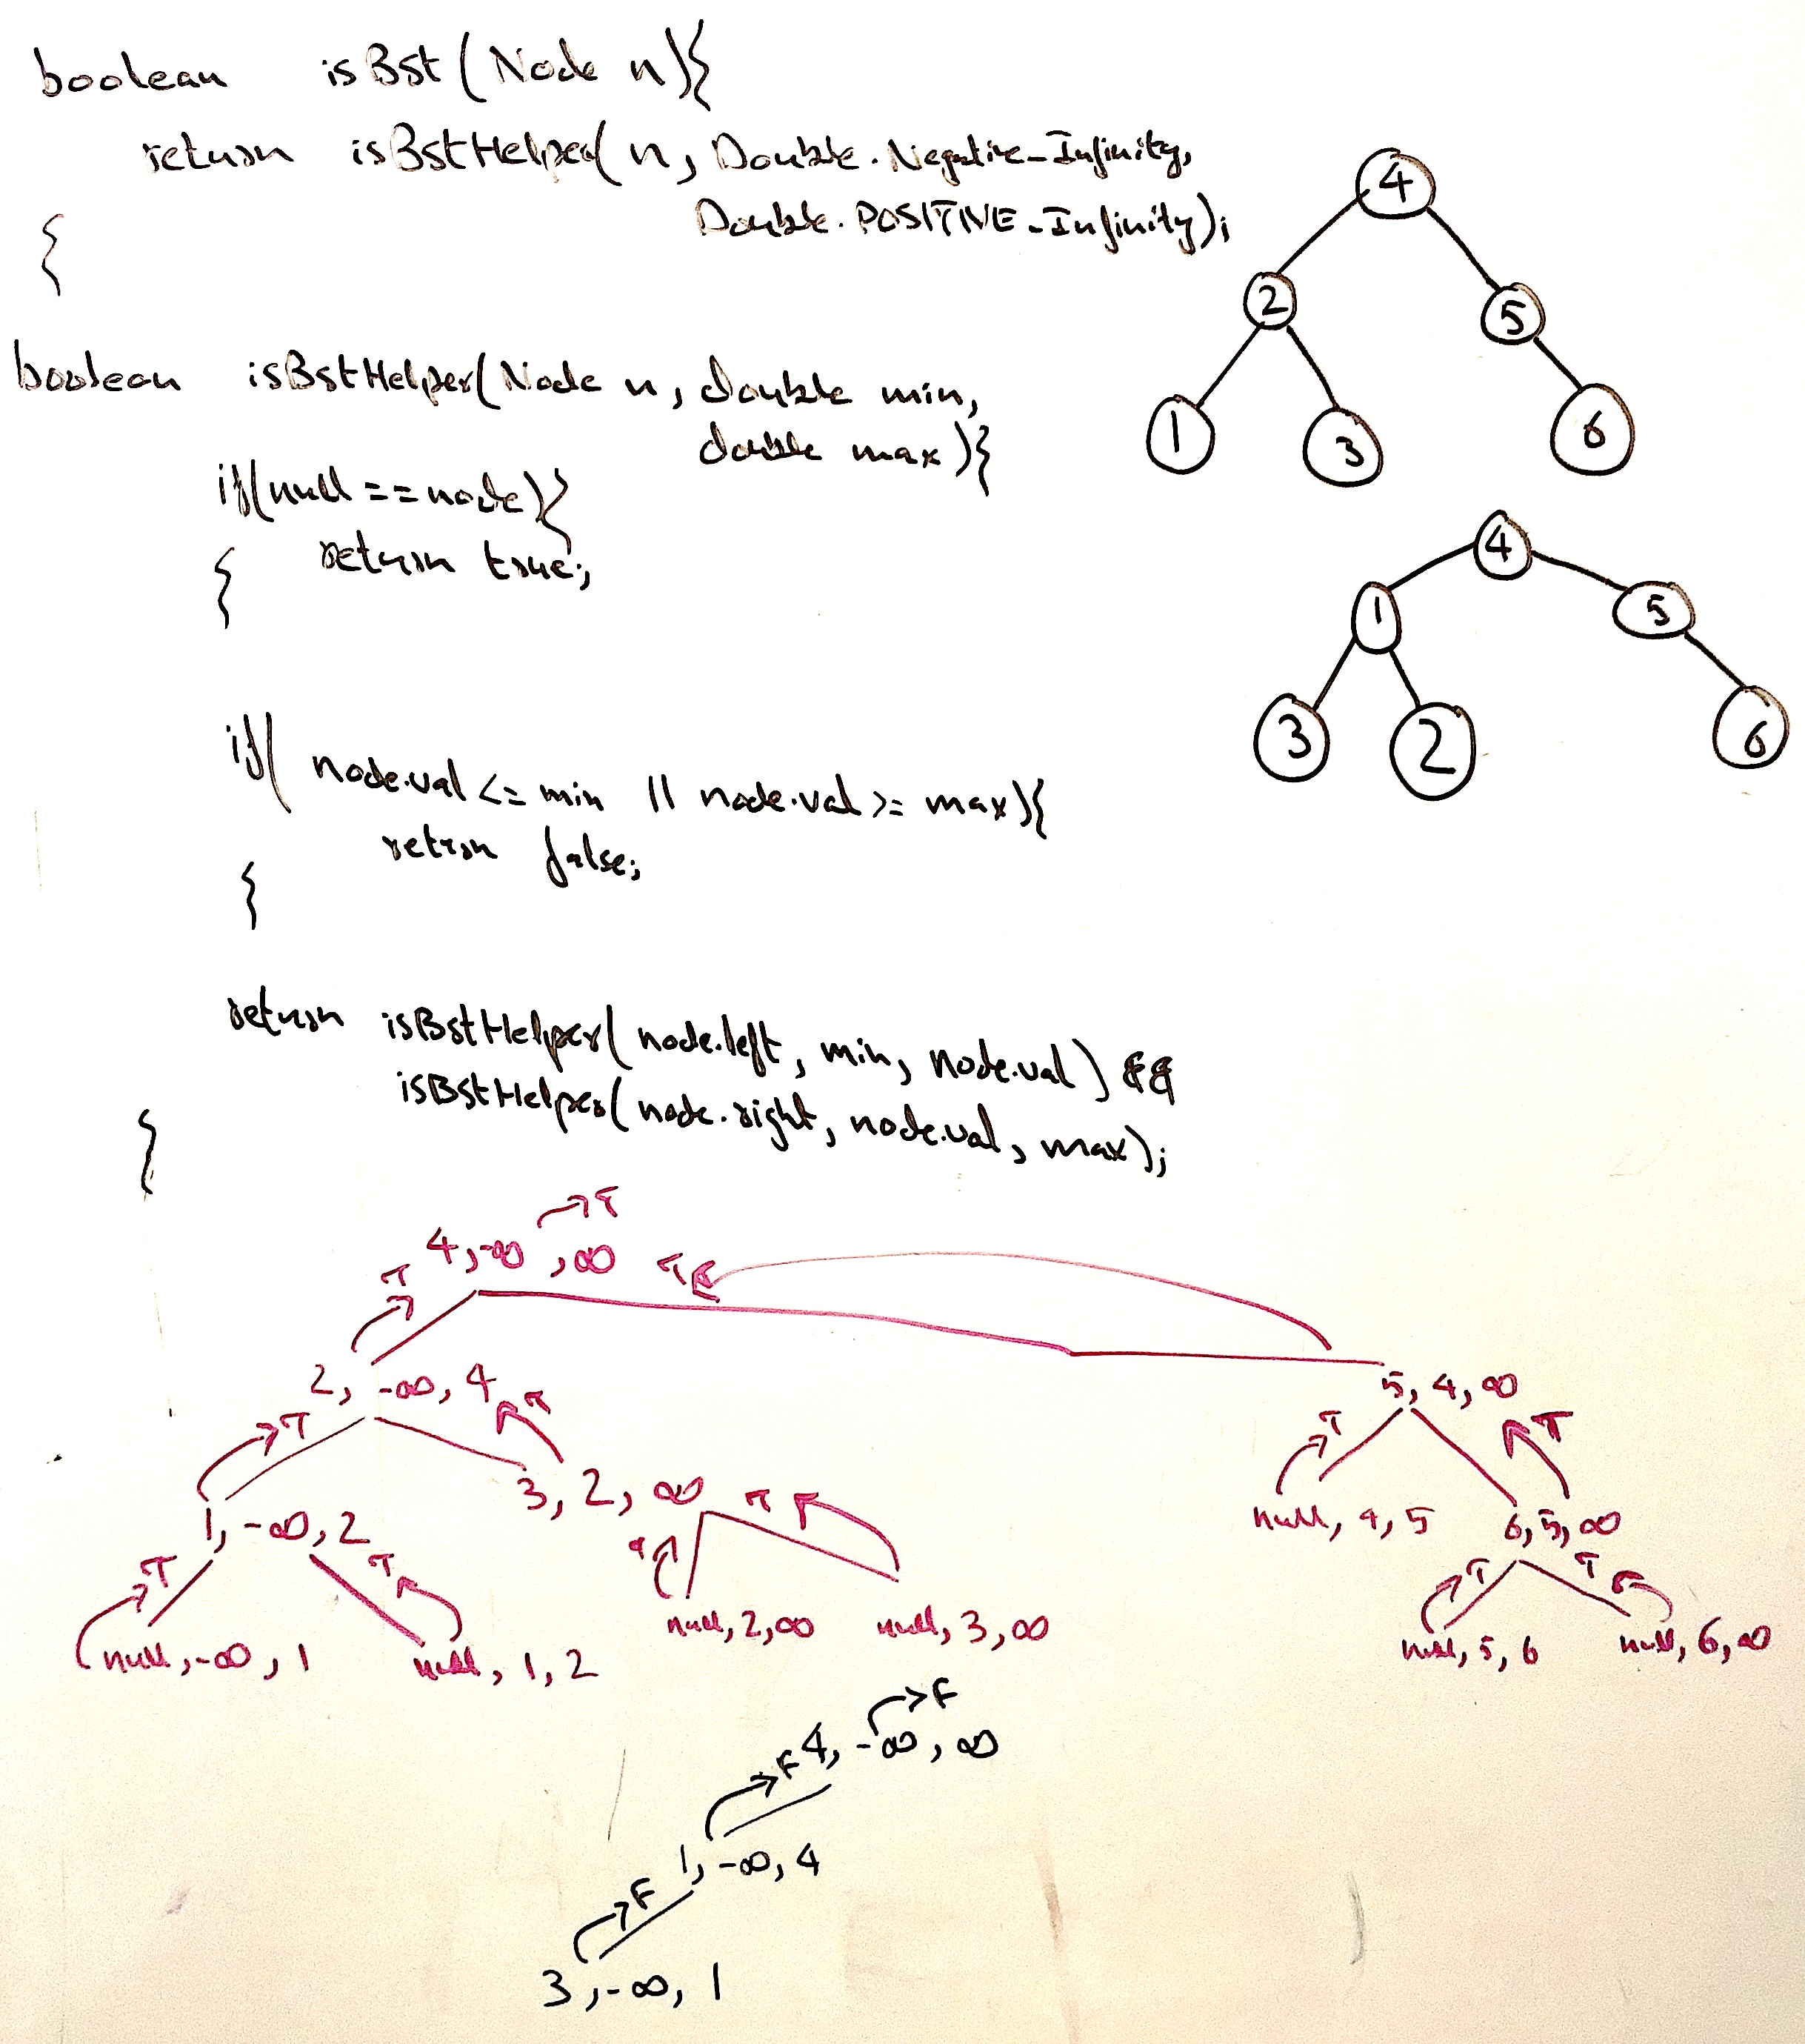 boolean isBst(Node n){
return isBstHelper(n, Double.Negative_Infinity,
Double.POSITIVE_Infinity);
{
boolean isBstHelper(Node n, double min,
double max){
if(null==node){
return true;
{
if( node.val <= min || node.val >= max){
return false;
{
return isBstHelper( node.left, min, node.val) &&
isBstHelper( node.right, node.val, max);
{
4
2
5
1
3
6
4
1
5
3
2
6
T
4, -∞, ∞
T
T
2, -∞, 4
T
5, 4, ∞
T
T
T
3, 2, ∞
T
1, -∞, 2
null, 4, 5
6, 5, ∞
T
T
T
T
T
null, -∞, 1
null, 1, 2
null, 2, ∞
null, 3, ∞
null, 5, 6
null, 6, ∞
F
F
4, -∞, ∞
1, -∞, 4
F
3, -∞, 1